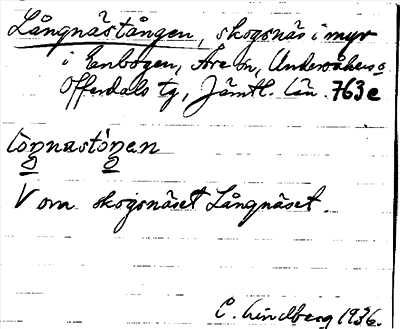 Långnästången, skogsnäs i myr
i Enbogen, Åre sn, Undersåkers o
Offerdals tg, Jämtl. län. 763e
lo̬nnastó̬nen
V om skogsnäset Långnäset.
C. Lindberg 1936.